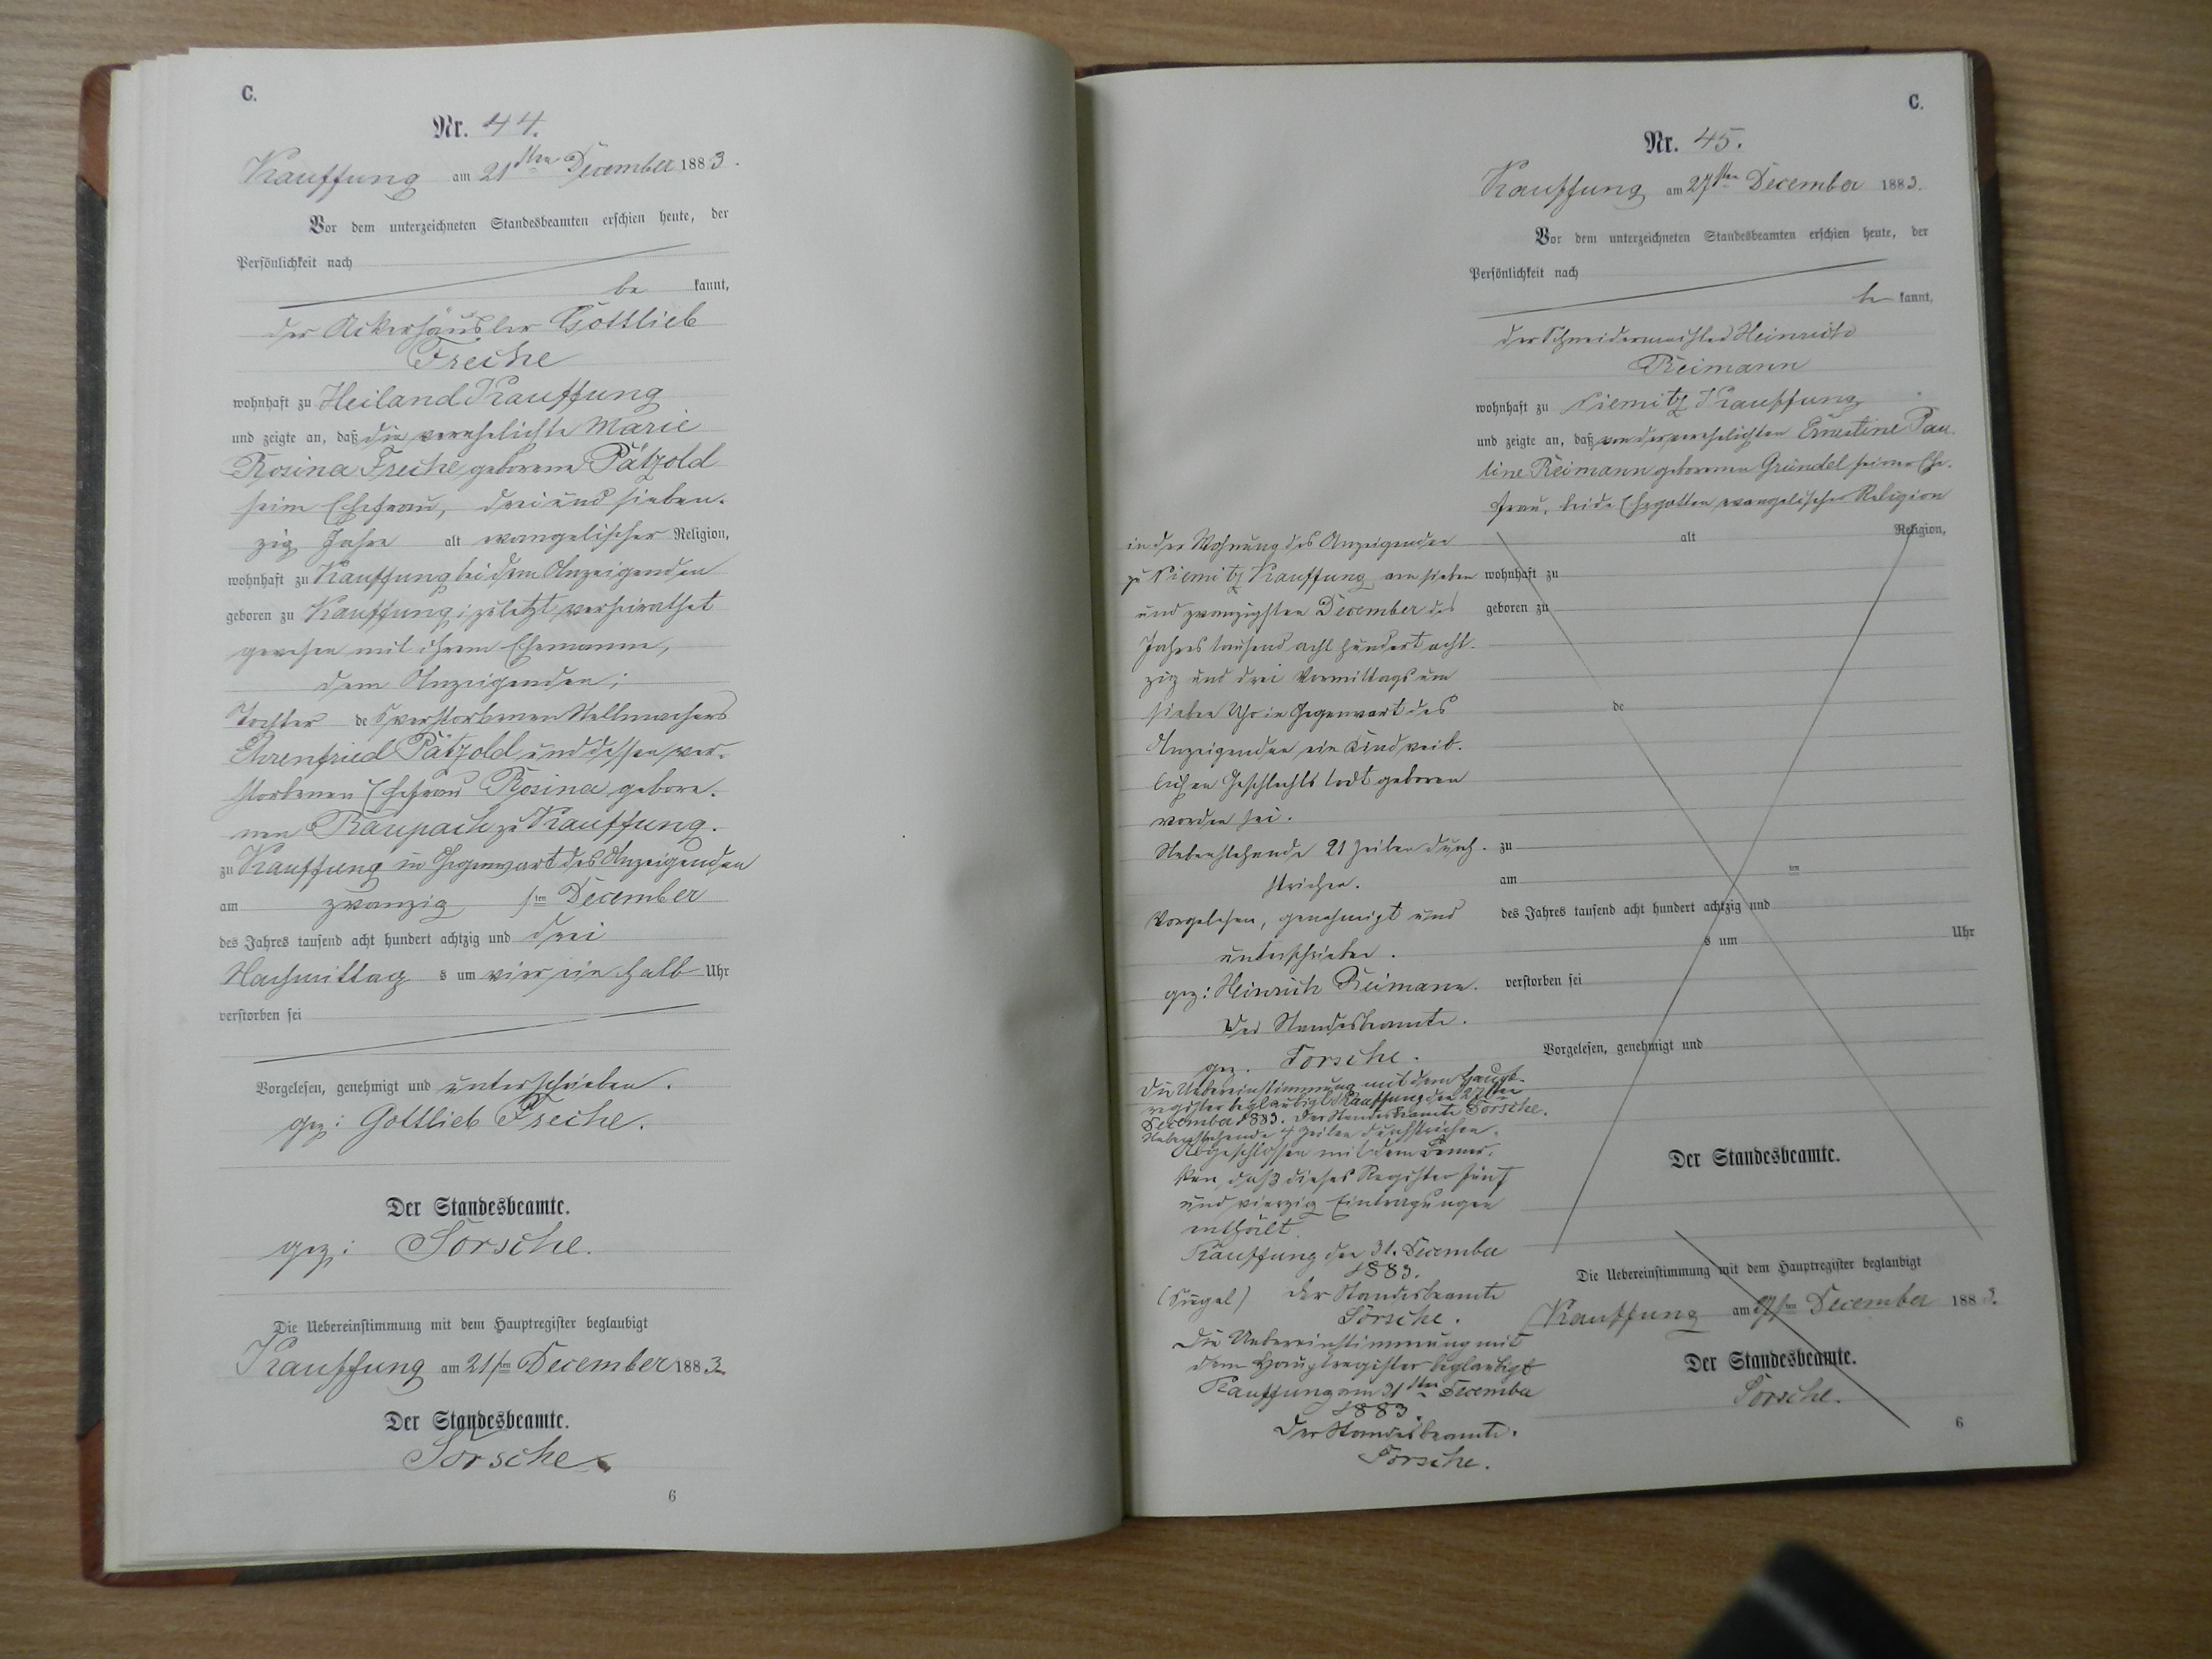 C.
Nr. 44.
Kauffung am 21sten December 1883.
Vor dem unterzeichneten Standesbeamten erschien heute, der
Persönlichkeit nach
be kannt,
der Ackerhäusler Gottlieb
Freche
wohnhaft zu Heiland Kauffung
und zeigte an, daß die verehelichte Marie
Rosina Freche geborene Pätzold
seine Ehefrau, drei und sieben-
zig Jahre alt evangelischer Religion,
wohnhaft zu Kauffung bei dem Anzeigenden
geboren zu Kauffung; zuletzt verheirathet
gewesen mit ihrem Ehemanne,
dem Anzeigenden;
Tochter des verstorbenen Stellmachers
Ehrenfried Pätzold und dessen ver-
storbenen Ehefrau Rosina gebore-
nen Raupach zu Kauffung.
zu Kauffung in Gegenwart des Anzeigenden
am zwanzigsten December
des Jahres tausend acht hundert achtzig und drei
Nachmittags um vier ein halb Uhr
verstorben sei
Vorgelesen, genehmigt und unterschrieben.
gez: Gottlieb Freche.
Der Standesbeamte.
gez: Sorsche.
Die Uebereinstimmung mit dem Hauptregister beglaubigt
Kauffung am 21sten December 1883.
Der Standesbeamte.
Sorsche
6
C.
Nr. 45.
Kauffung am 27sten December 1883.
Vor dem unterzeichneten Standesbeamten erschien heute, der
Persönlichkeit nach
be kannt,
der Schneidermeister Heinrich
Reimann
wohnhaft zu Niemitz Kauffung
und zeigte an, daß von der verehelichten Ernestine Pau
line Reimann geborenen Gründel seiner Ehe-
frau, beide Ehegatten evangelischer Religion
alt Religion,
wohnhaft zu
geboren zu
de
zu
am ten
des Jahres tausend acht hundert achtzig und
s um Uhr
verstorben sei
Vorgelesen, genehmigt und
in der Wohnung des Anzeigenden
zu Niemitz Kauffung am sieben
und zwanzigsten December des
Jahres tausend acht hundert acht-
zig und drei Vormittags um
sieben Uhr in Gegenwart des
Anzeigenden ein Kind weib-
lichen Geschlechts todt geboren
worden sei.
Nebenstehende 21 Zeilen durch-
strichen.
Vorgelesen, genehmigt und
unterschrieben.
gez: Heinrich Reimann.
Der Standesbeamte.
gez. Sorsche.
Die Uebereinstimmung mit dem Haupt-
register beglaubigt Kauffung den 27sten
December 1883. Der Standesbeamte Sorsche.
Nebenstehende 4 Zeilen durchstrichen.
Abgeschlossen mit dem Bemer-
ken, daß dieses Register fünf
und vierzig Eintragungen
enthält.
Kauffung den 31. December
1883.
(Siegel) Der Standesbeamte
Sorsche.
Die Uebereinstimmung mit
dem Hauptregister beglaubigt
Kauffung am 31sten December
1883.
Der Standesbeamte.
Sorsche.
Der Standesbeamte.
Die Uebereinstimmung mit dem Hauptregister beglaubigt
Kauffung am 27sten December 1883.
Der Standesbeamte.
Sorsche.
6